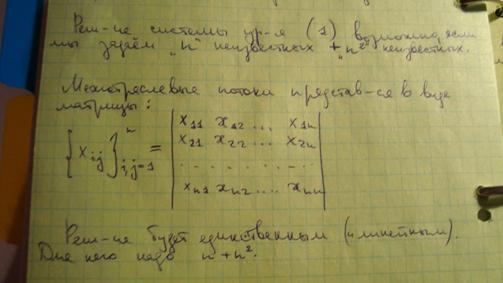 Реш-ие системы ур-я (1) возможно, если
мы задаём "n" неизвестных + "n²" неизвестных.
Межотраслевые потоки представ-ся в виде
матрицы:
{x_ij}ⁿ_i,j=1 = | x₁₁ x₁₂ ... x₁ₙ |
| x₂₁ x₂₂ ... x₂ₙ |
| . . . . . . . . . . |
| xₙ₁ xₙ₂ .... xₙₙ |
Реш-ие будет единственным (и линейным).
Для него надо n+n².